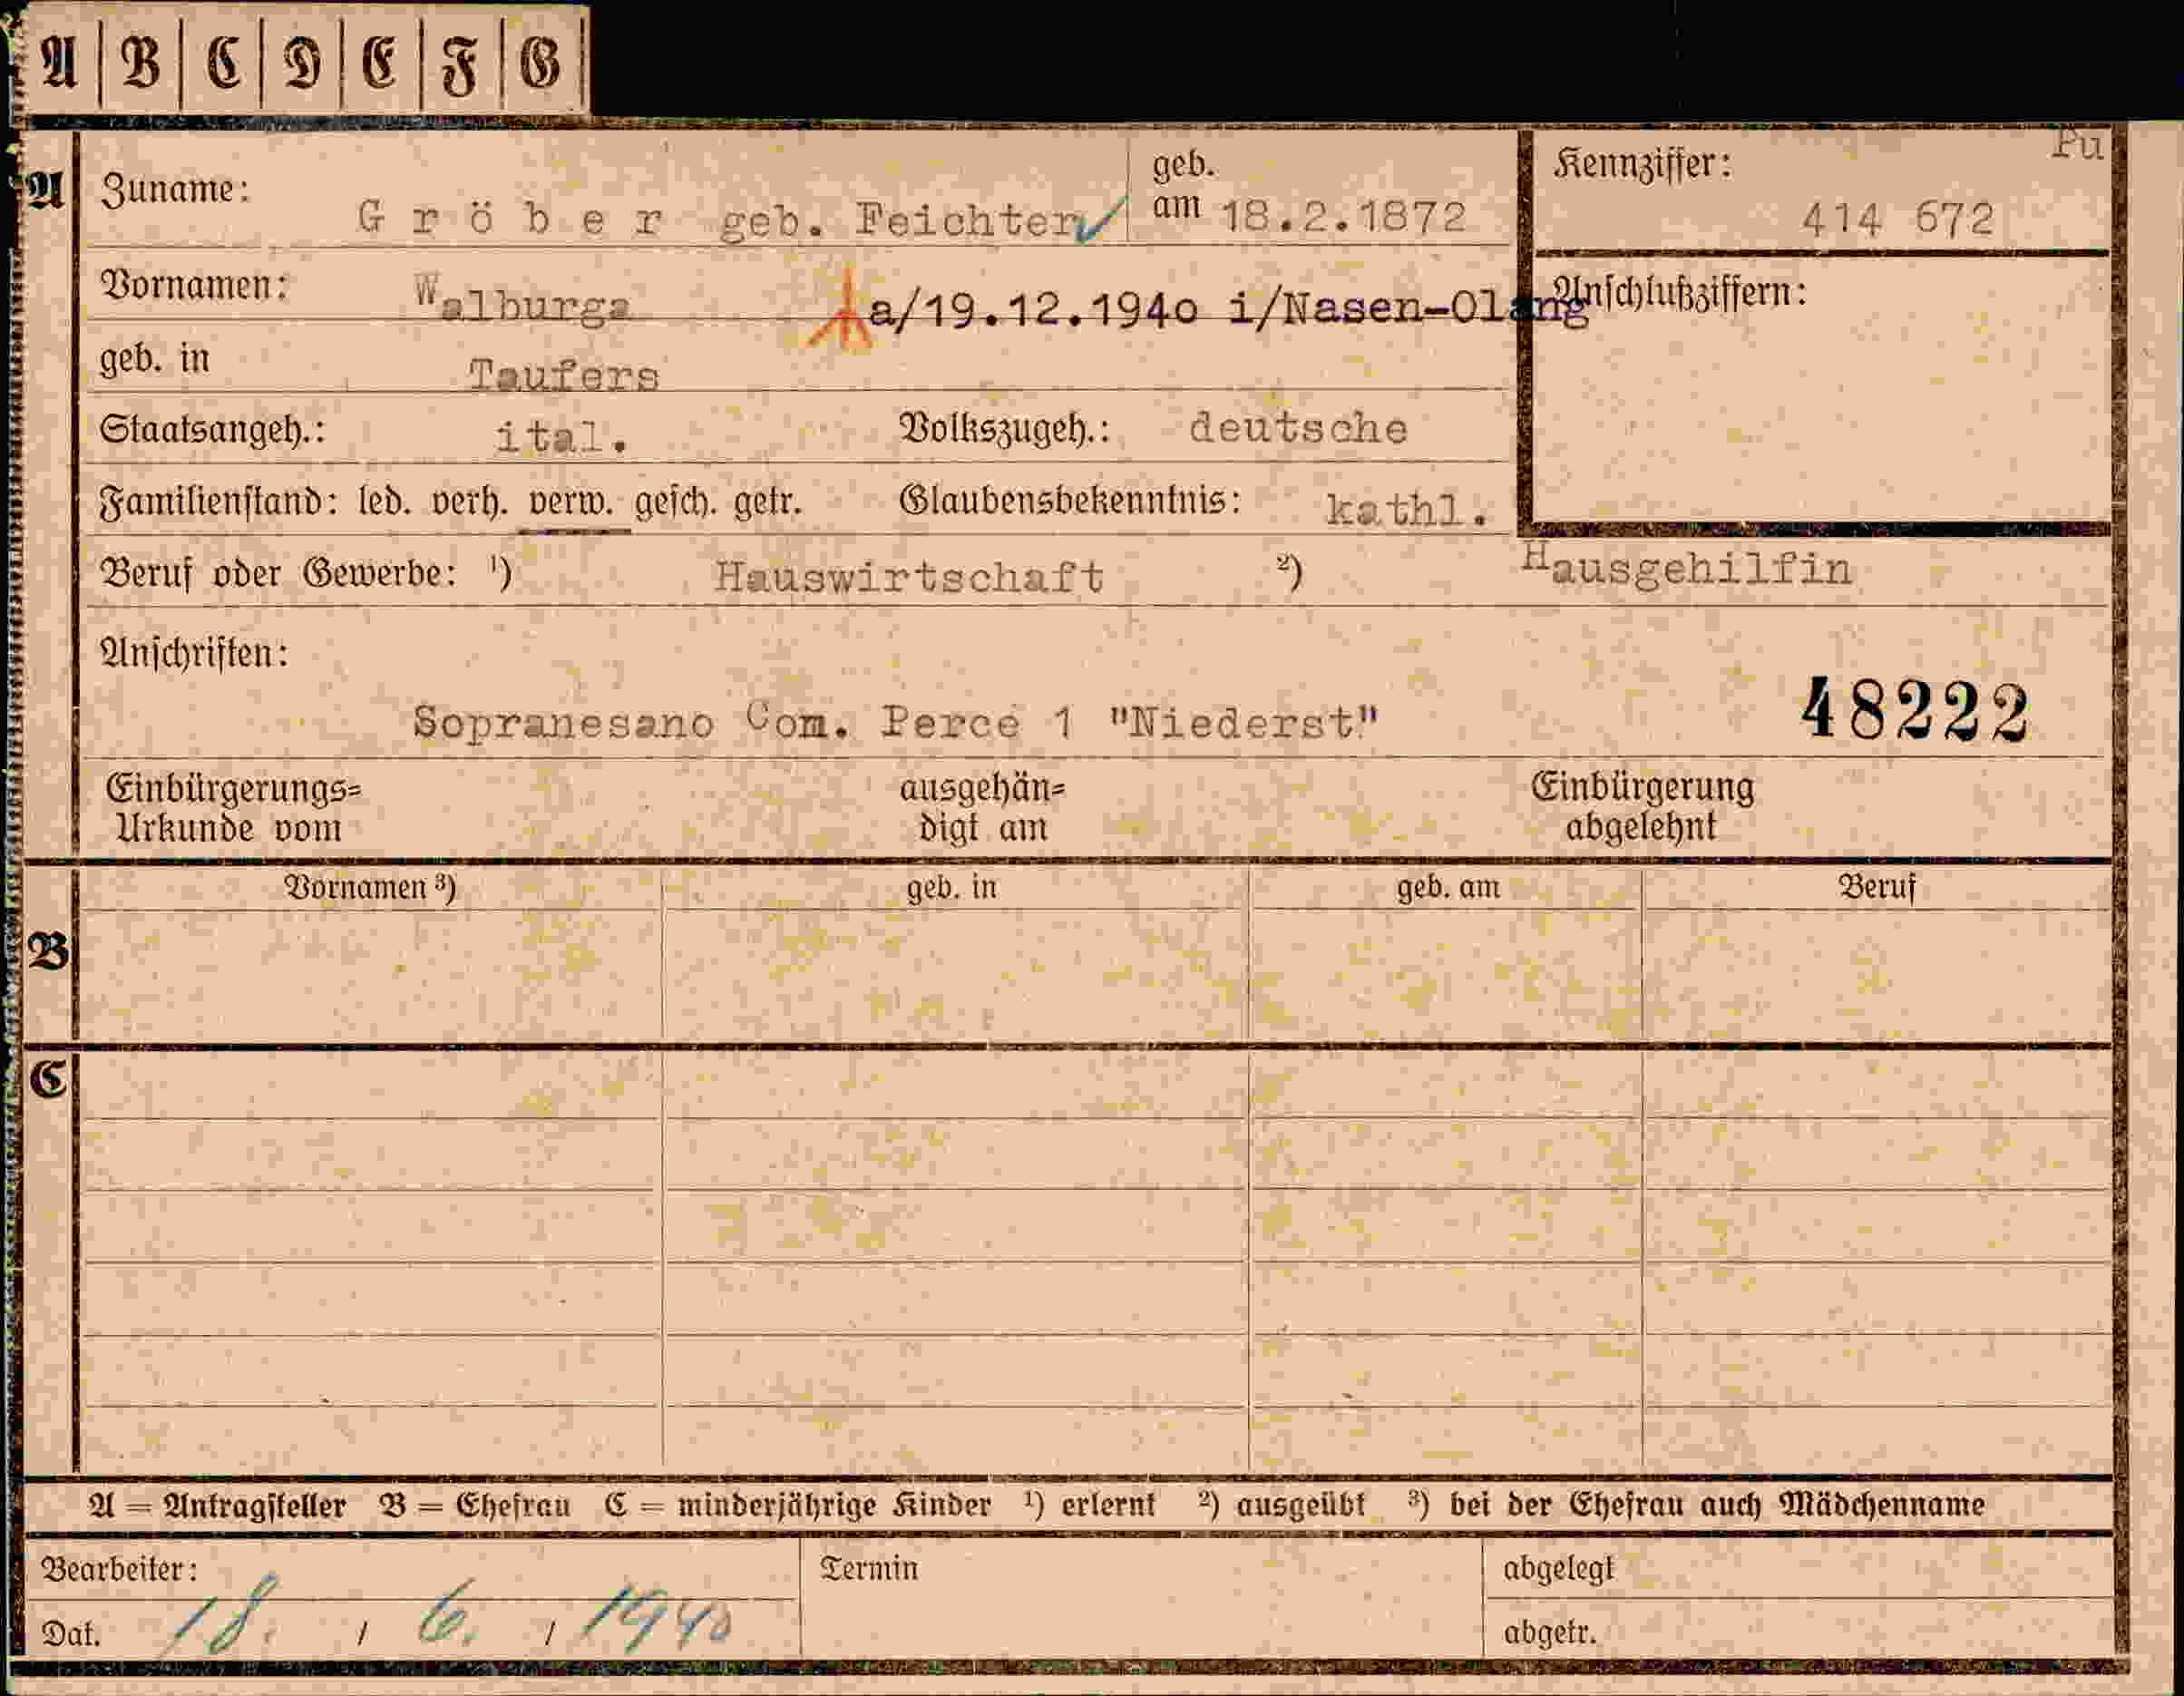 A B C D E F G
Pu
A
Zuname: Gröber geb. Feichter geb. am 18.2.1872
Kennziffer: 414 672
Vornamen: Walburga a/19.12.1940 i/Nasen-Olang
Anschlußziffern:
geb. in Taufers
Staatsangeh.: ital. Volkszugeh.: deutsche
Familienstand: led. verh. verw. gesch. getr. Glaubensbekenntnis: kathl.
Beruf oder Gewerbe: ¹) Hauswirtschaft ²) Hausgehilfin
Anschriften:
Sopranesano Com. Perce 1 "Niederst" 48222
Einbürgerungs= ausgehän= Einbürgerung
Urkunde vom digt am abgelehnt
Vornamen ³) geb. in geb. am Beruf
B
C
A = Antragsteller B = Ehefrau C = minderjährige Kinder ¹) erlernt ²) ausgeübt ³) bei der Ehefrau auch Mädchenname
Bearbeiter: Termin abgelegt
Dat. 18. / 6. / 1940 abgetr.